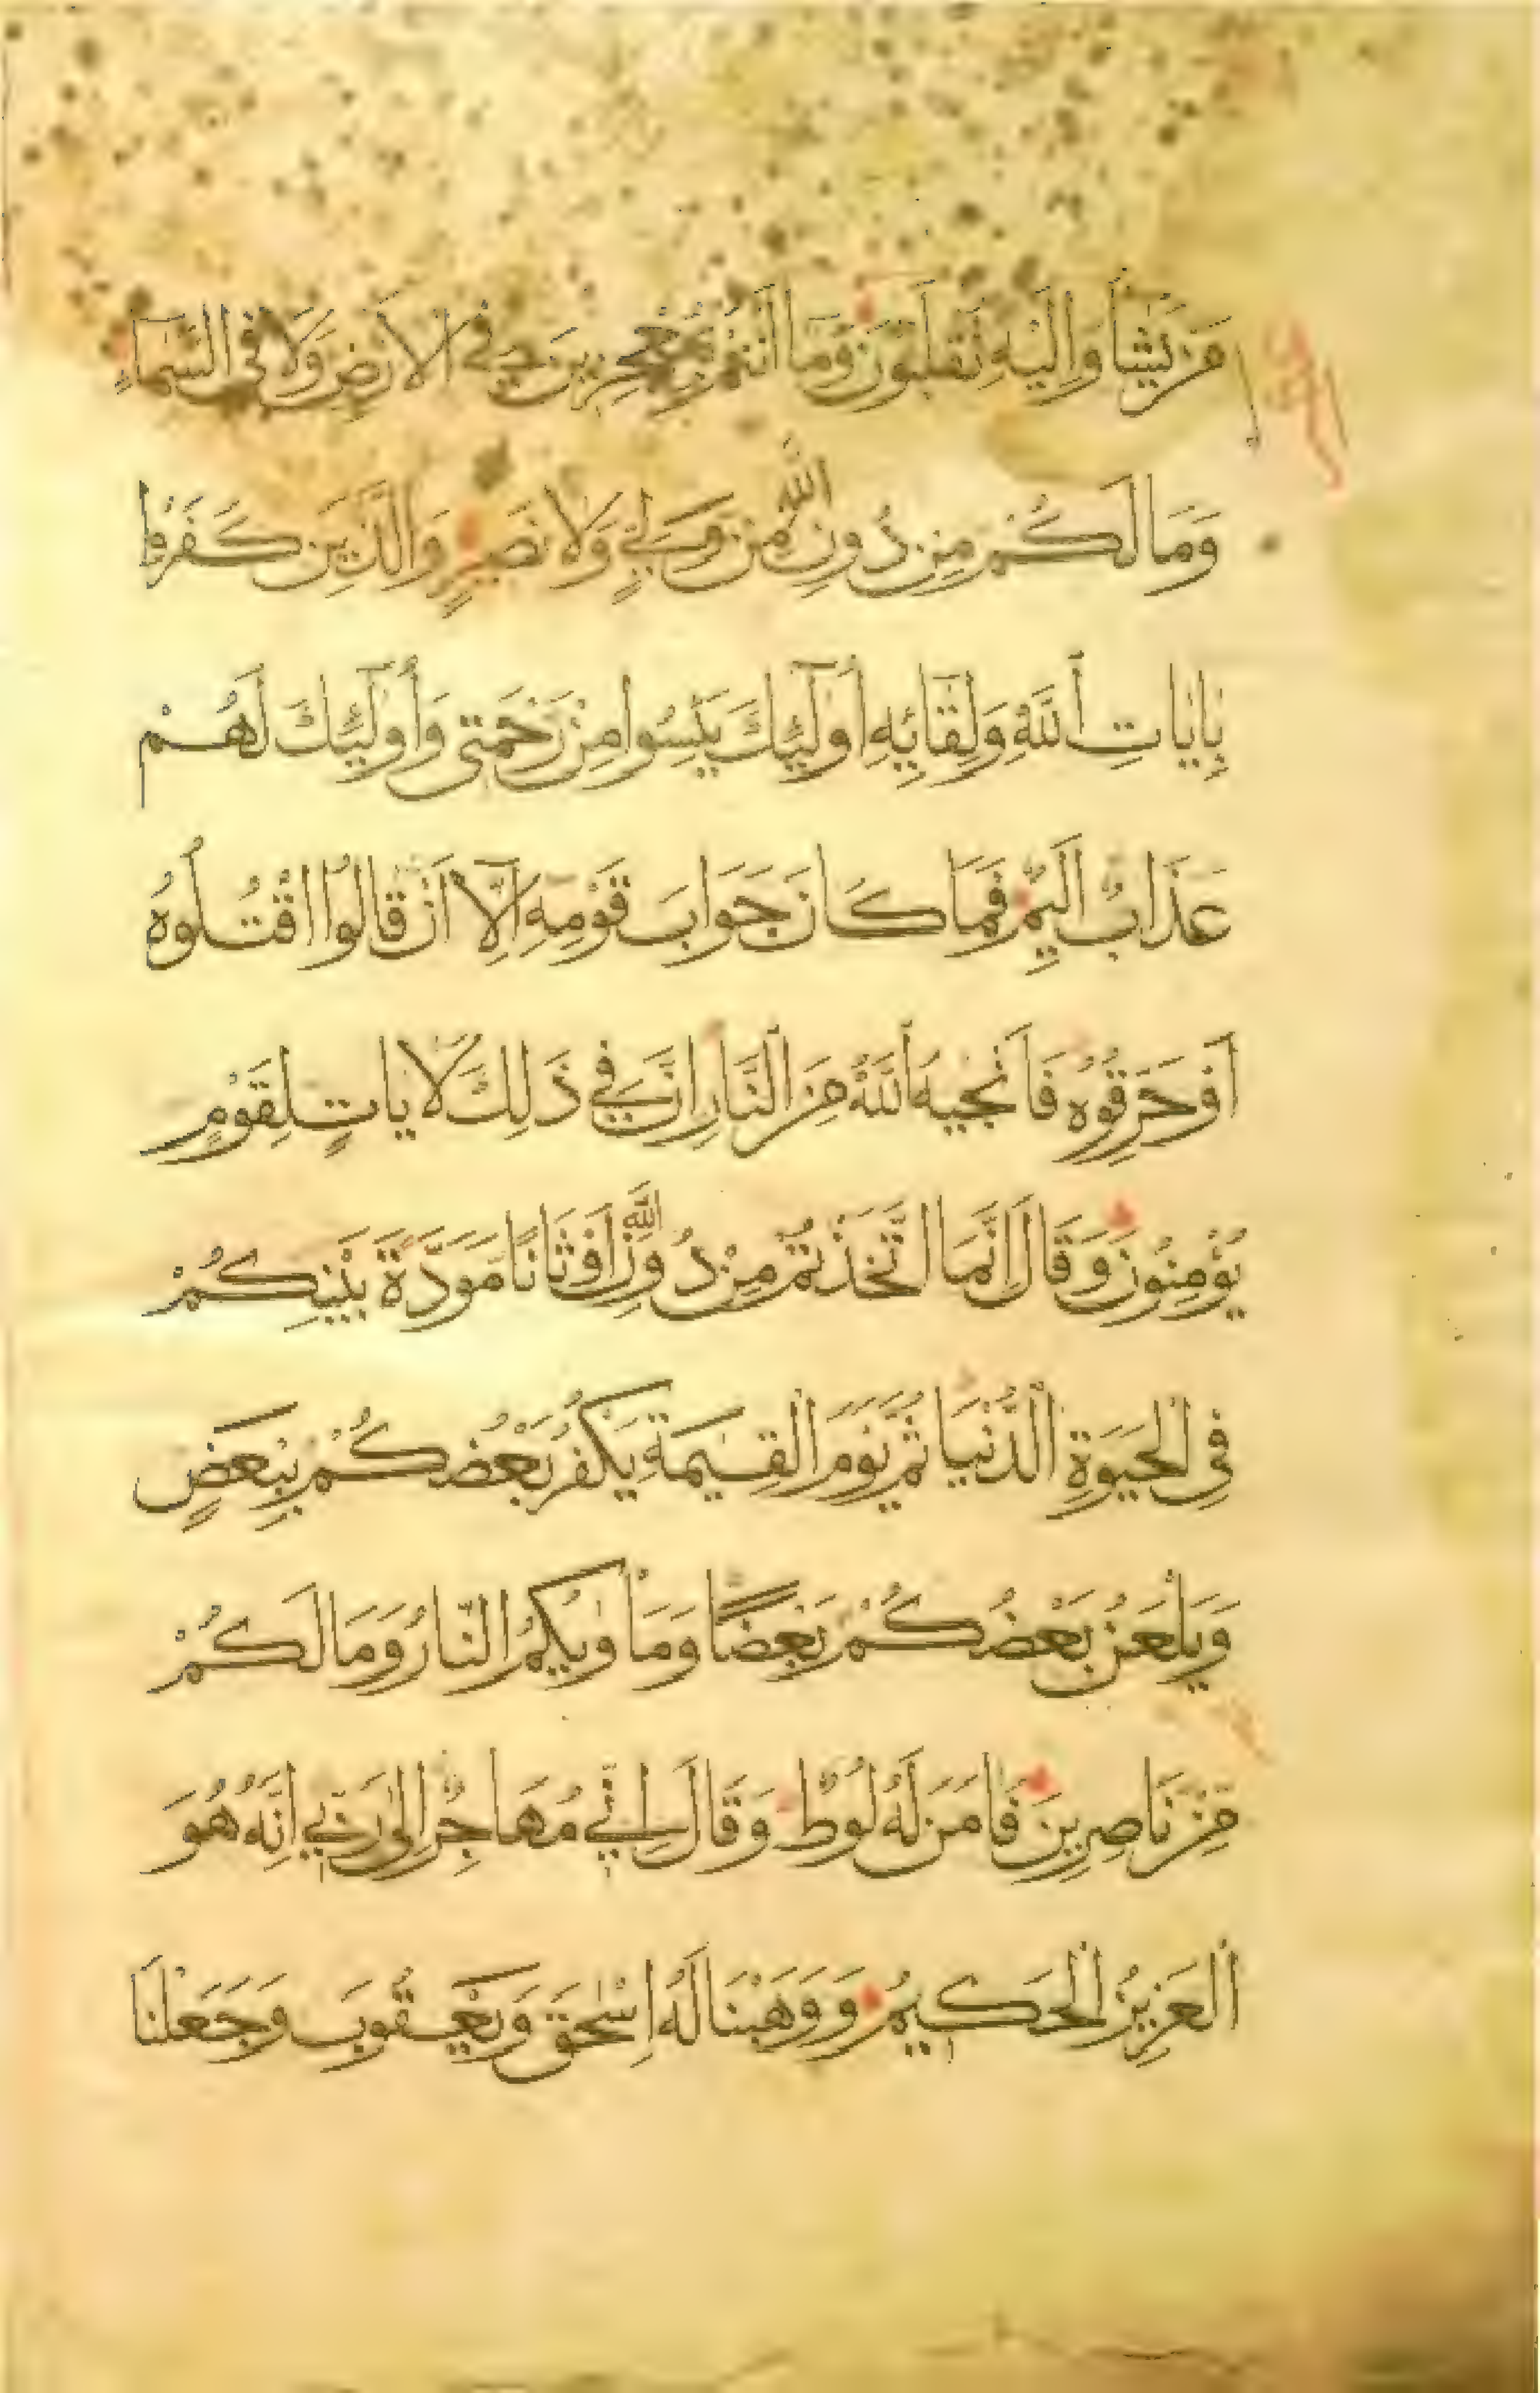 مَن يَشَآءُ وَاِلَيْهِ تُقْلَبُونَ وَمَا اَنْتُمْ بِمُعْجِزِينَ فِي الْاَرْضِ وَلَا فِي السَّمَآءِ
وَمَا لَكُمْ مِنْ دُونِ اللّٰهِ مِنْ وَلِيٍّ وَلَا نَصِيرٍ وَالَّذِينَ كَفَرُوا
بِاٰيَاتِ اللّٰهِ وَلِقَآئِهِ اُولٰٓئِكَ يَئِسُوا مِنْ رَحْمَتِي وَاُولٰٓئِكَ لَهُمْ
عَذَابٌ اَلِيمٌ فَمَا كَانَ جَوَابَ قَوْمِهِ اِلَّآ اَنْ قَالُوا اقْتُلُوهُ
اَوْ حَرِّقُوهُ فَاَنْجٰيهُ اللّٰهُ مِنَ النَّارِ اِنَّ فِي ذٰلِكَ لَاٰيَاتٍ لِقَوْمٍ
يُؤْمِنُونَ وَقَالَ اِنَّمَا اتَّخَذْتُمْ مِنْ دُونِ اللّٰهِ اَوْثَانًا مَوَدَّةَ بَيْنِكُمْ
فِي الْحَيٰوةِ الدُّنْيَا ثُمَّ يَوْمَ الْقِيٰمَةِ يَكْفُرُ بَعْضُكُمْ بِبَعْضٍ
وَيَلْعَنُ بَعْضُكُمْ بَعْضًا وَمَأْوٰيكُمُ النَّارُ وَمَا لَكُمْ
مِنْ نَاصِرِينَ فَاٰمَنَ لَهُ لُوطٌ وَقَالَ اِنِّي مُهَاجِرٌ اِلٰى رَبِّي اِنَّهُ هُوَ
الْعَزِيزُ الْحَكِيمُ وَوَهَبْنَا لَهُ اِسْحٰقَ وَيَعْقُوبَ وَجَعَلْنَا